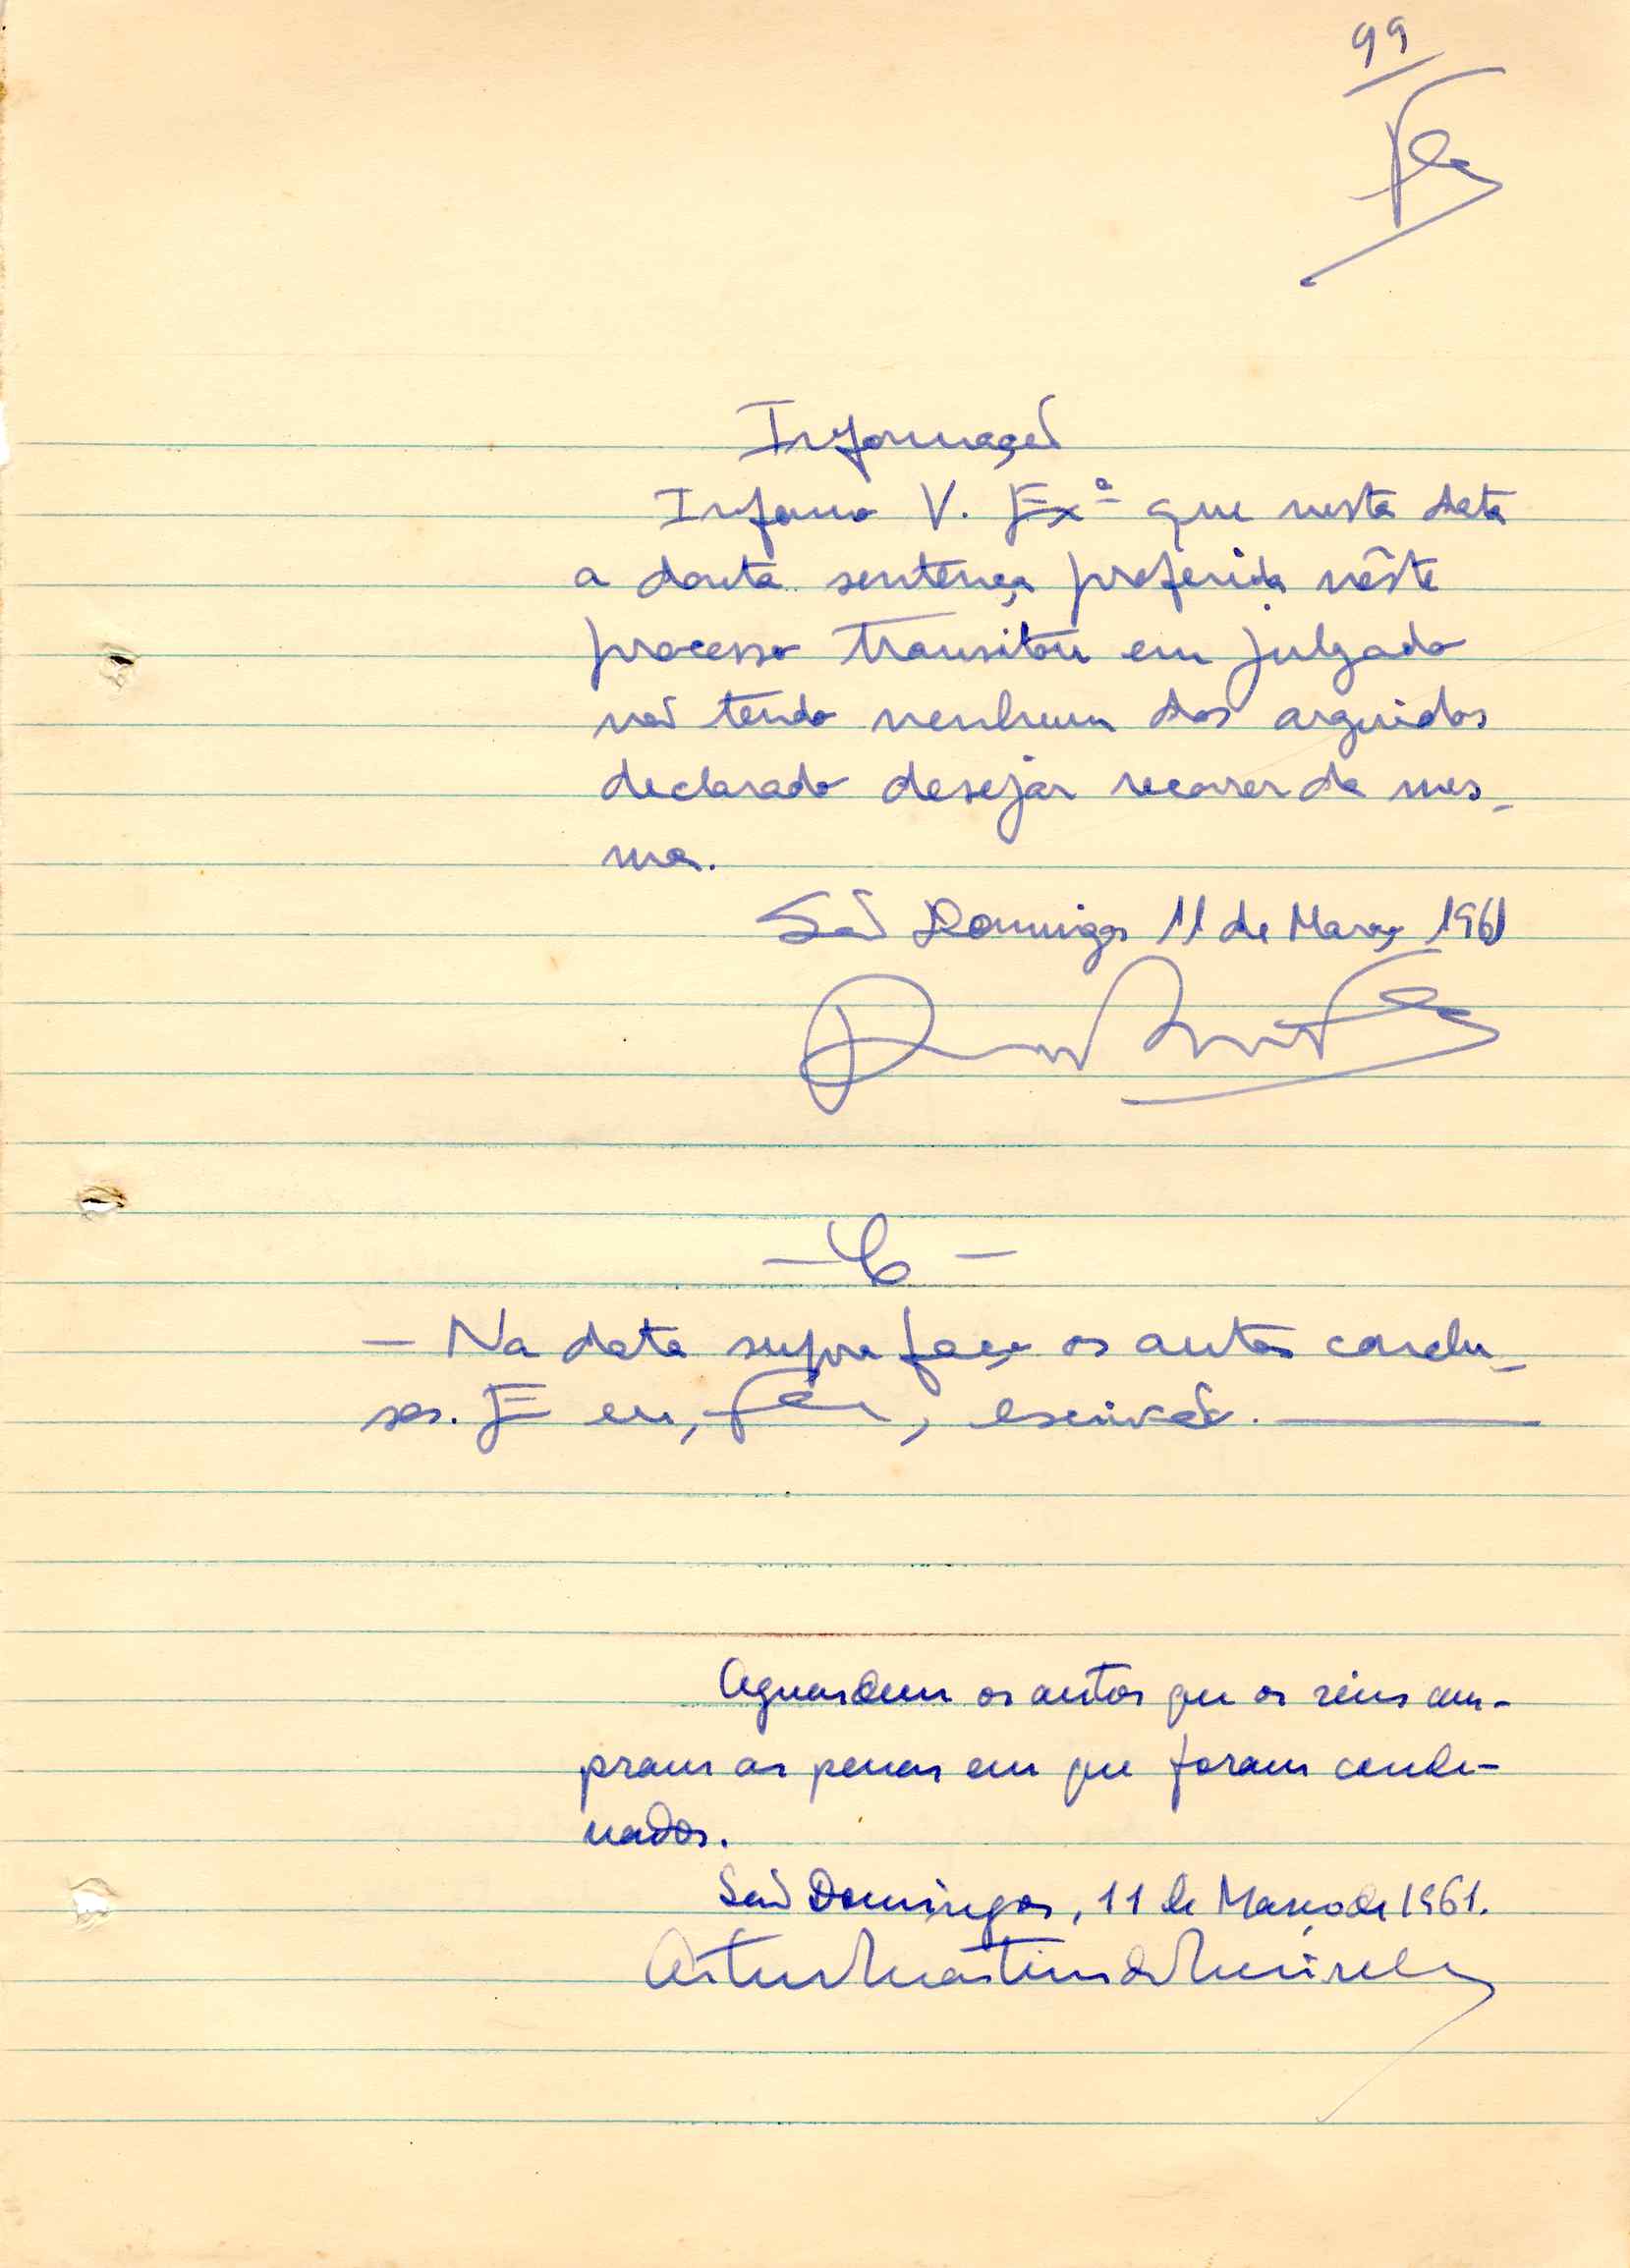 99
Informação
Informo V. Exª que nesta data
a douta sentença proferida nêste
processo transitou em julgado
não tendo nenhum dos arguidos
declarado desejar recorrer da mes-
ma.
São Domingos 11 de Março 1961
— C —
— Na data supra faço os autos conclu-
sos. E eu, , escrivão.
Aguardem os autos que os réus cum-
pram as penas em que foram conde-
nados.
São Domingos, 11 de Março de 1961.
Artur Martins de Meireles